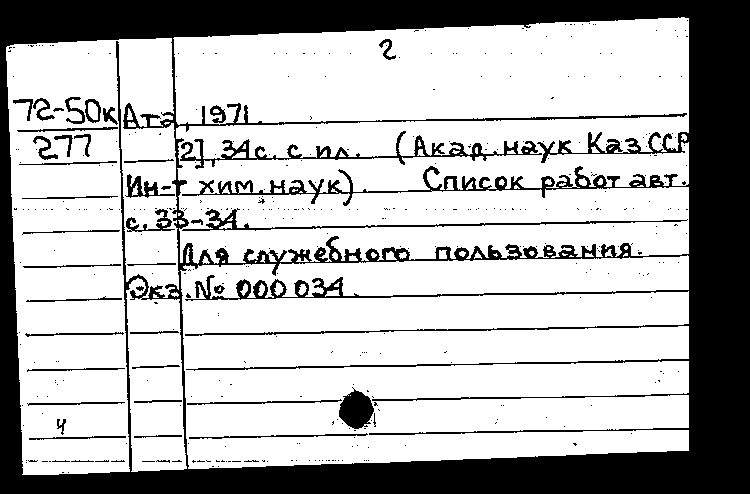 2
72-50к Ата, 1971.
277 [2], 34с. с ил. (Акад. наук КазССР
Ин-т хим. наук). Список работ авт.
с. 33-34.
Для служебного пользования.
Экз. № 000034.
ч